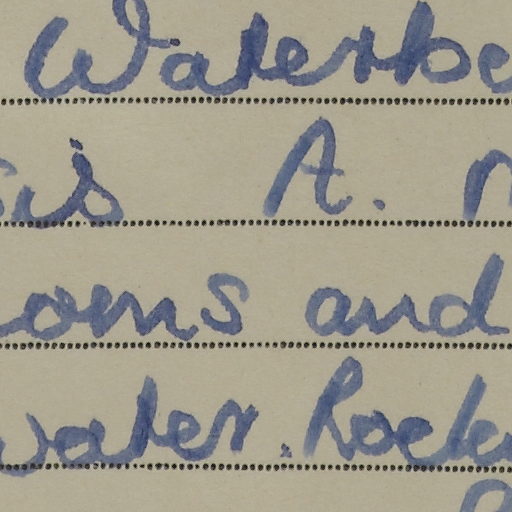 Waterbe
sis A.
oms and
water. Rock